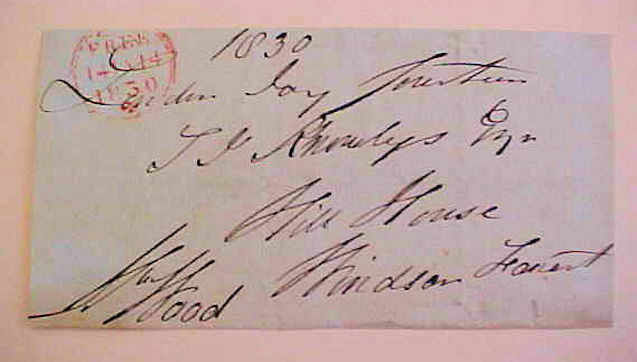 FREE
14 JA 14
1830
1830
London Jany fourteen
T J Knowlys Esqr
Hill House
Windsor Forest
Wood